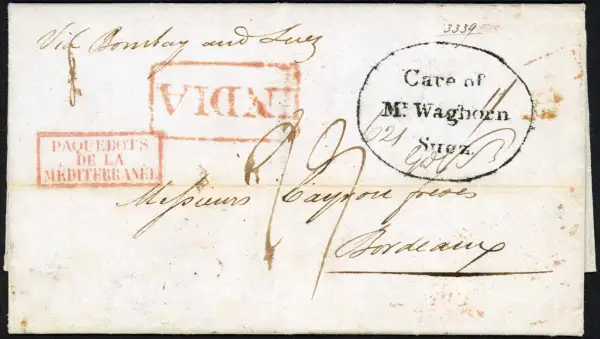 3339
Via Bombay and Suez
INDIA
Care of
Mr Waghorn
Suez
PAQUEBOTS
DE LA
MÉDITERRANÉE
Messieurs frères
Bordeaux